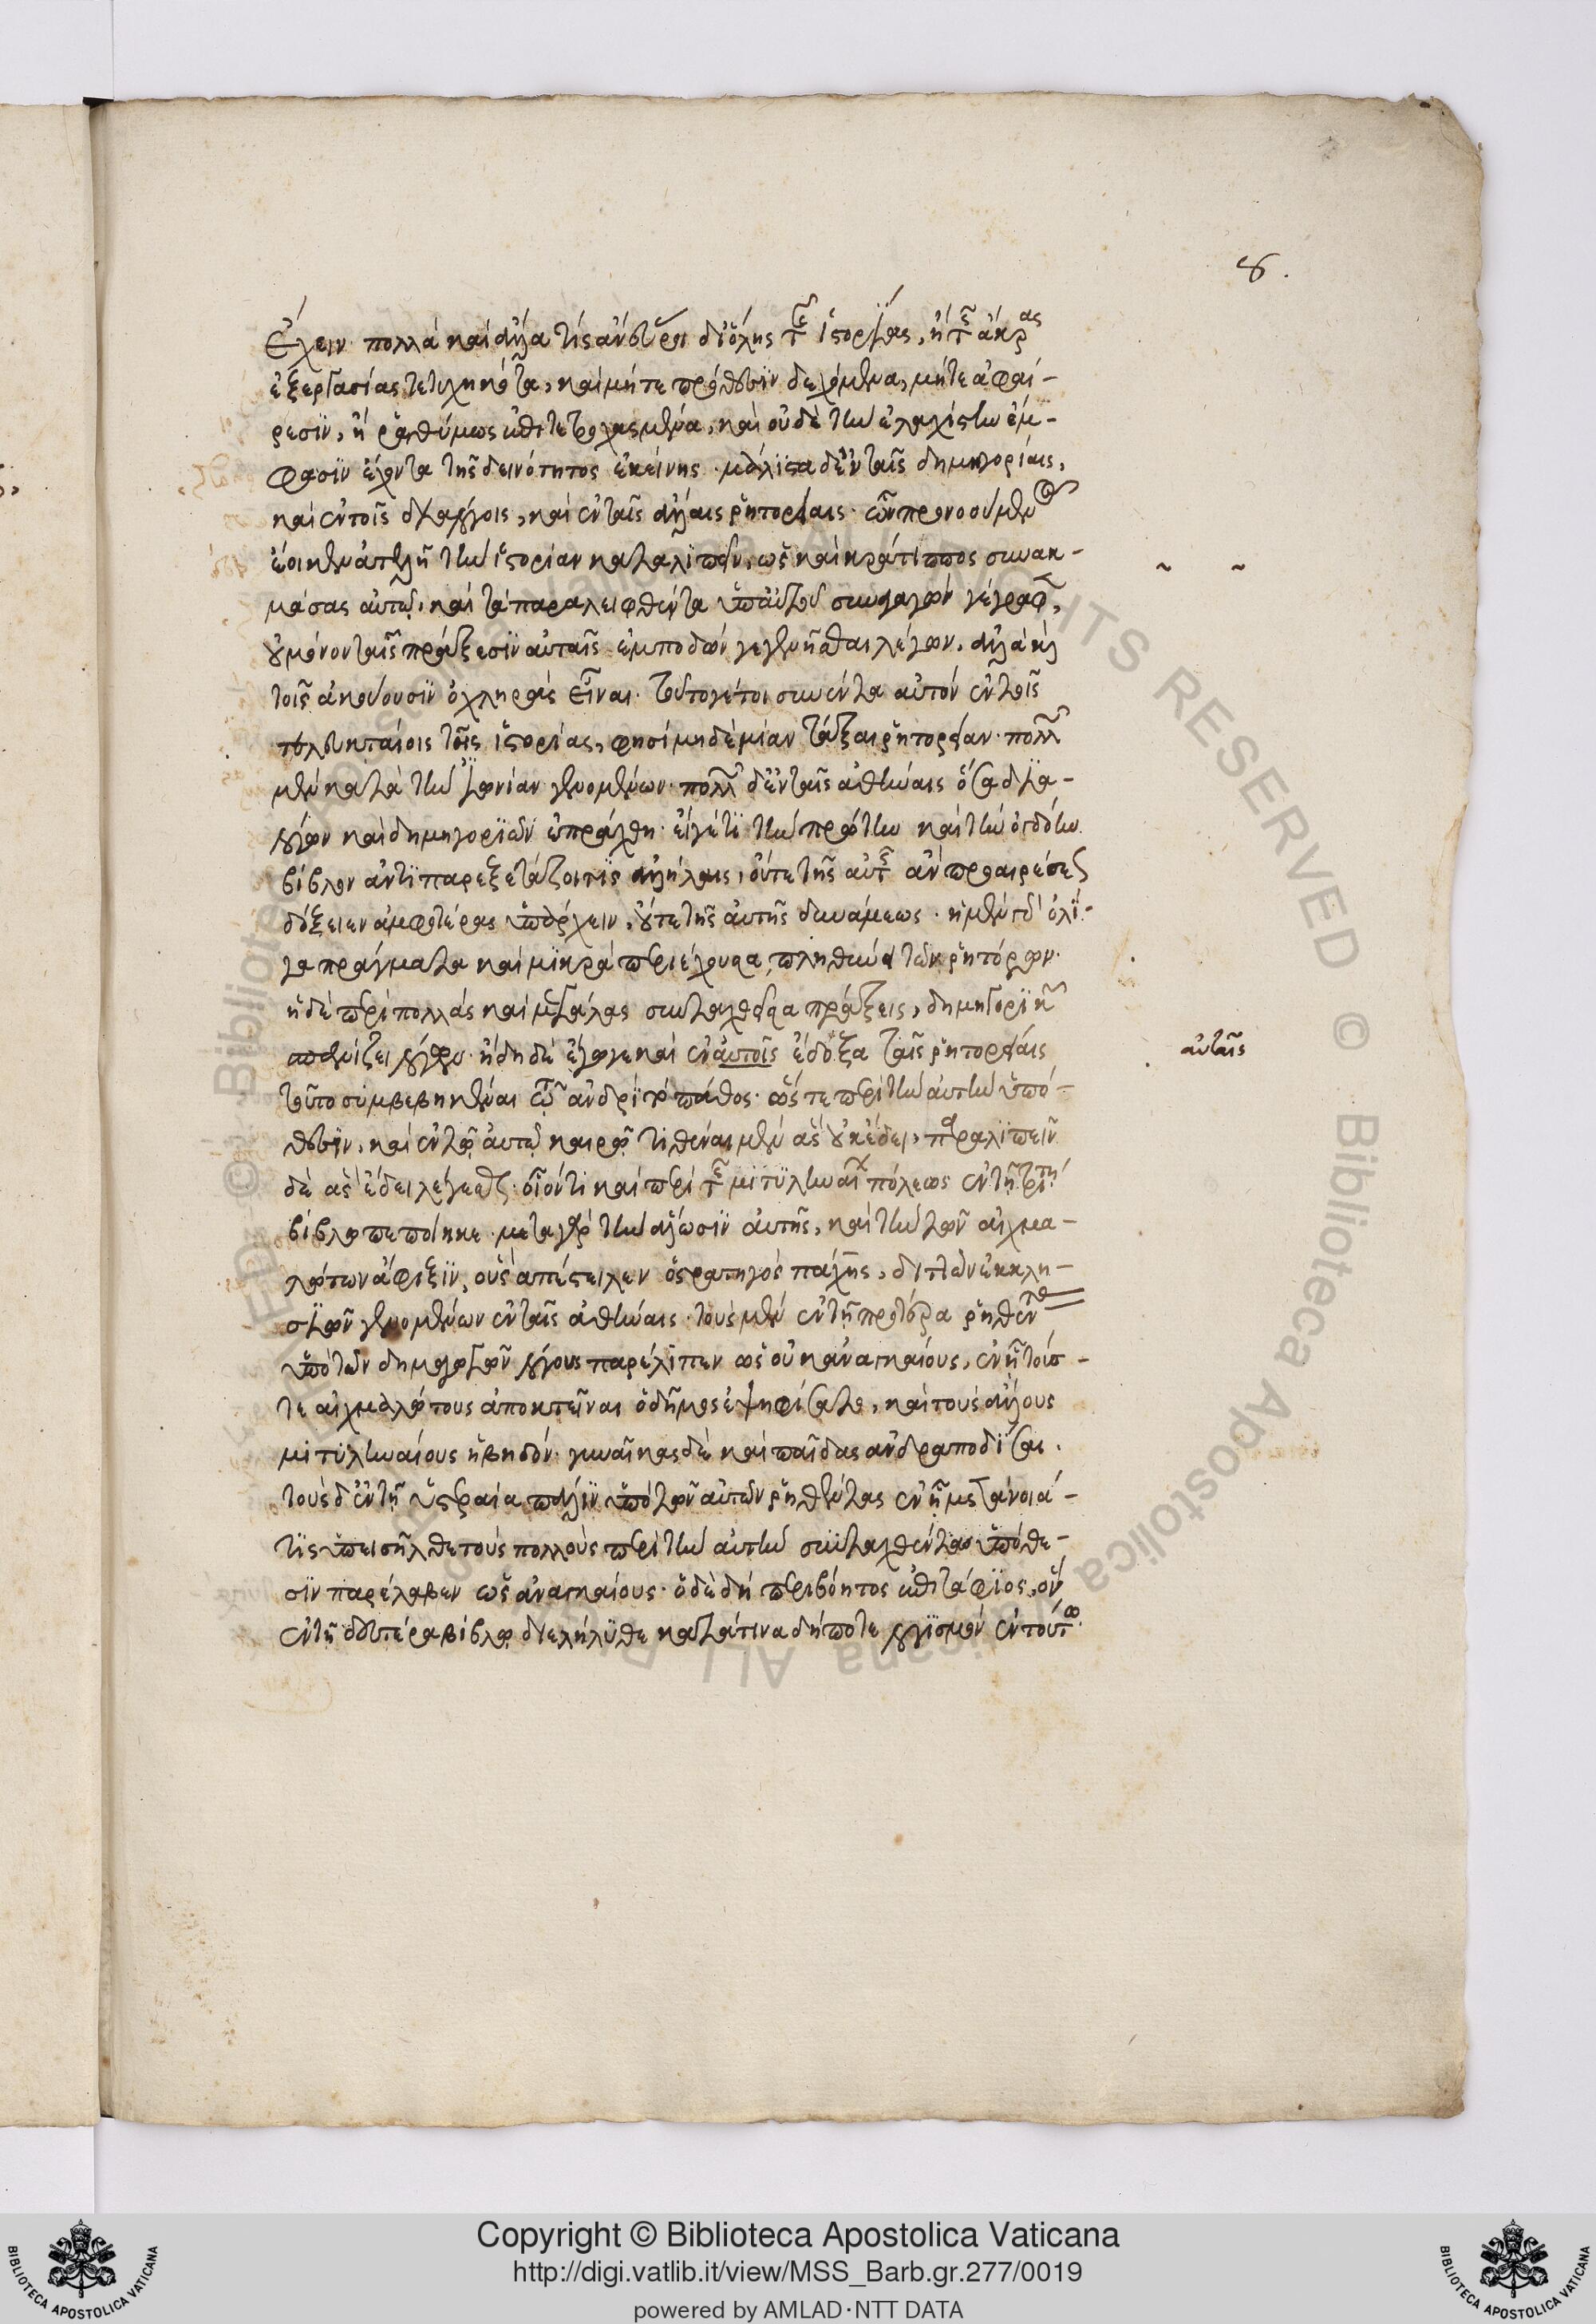 8.
ἔχειν. πολλὰ καὶ ἄλλα τὶς ἂν εὕροι δι' ὅλης τῆς ἱστορίας, ἢ τῆς ἄκρας
ἐξεργασίας τετυχηκότα, καὶ μήτε πρόσθεσιν δεχόμενα, μήτε ἀφαί-
ρεσιν, ἢ ῥαθύμως ἐπιτετροχασμένα, καὶ οὐδὲ τὴν ἐλαχίστην ἔμ-
φασιν ἔχοντα τῆς δεινότητος ἐκείνης. μάλιστα δ' ἐν ταῖς δημηγορίαις,
καὶ ἐν τοῖς διαλόγοις, καὶ ἐν ταῖς ἄλλαις ῥητορείαις. ὧν προνοούμενος
ἔοικεν ἀτελῆ τὴν ἱστορίαν καταλιπεῖν, ὡς καὶ κράτιππος συνακ-
μάσας αὐτῷ, καὶ τὰ παραλειφθέντα ὑπ' αὐτοῦ συναγαγὼν γέγραφεν,
οὐ μόνον ταῖς πράξεσιν αὐταῖς ἐμποδὼν γεγενῆσθαι λέγων, ἀλλὰ καὶ
τοῖς ἀκούουσιν ὀχληρὰς εἶναι. τοῦτό γέ τοι συνέντα αὐτὸν ἐν τοῖς
τελευταίοις τῆς ἱστορίας, φησὶ μηδεμίαν τάξαι ῥητορείαν. πολλῶν
μὲν κατὰ τὴν ἰωνίαν γενομένων. πολλῶν δ' ἐν ταῖς ἀθήναις ὅσα δια-
λόγων καὶ δημηγοριῶν ἐπράχθη. εἴ γέ τι τὴν πρώτην καὶ τὴν ὀγδόην
βίβλον ἀντιπαρεξετάζοι τις ἀλλήλαις, οὔτε τῆς αὐτῆς ἂν προαιρέσεως
δόξειεν ἀμφοτέρας ὑπάρχειν, οὔτε τῆς αὐτῆς δυνάμεως. ἡ μὲν γὰρ ὀλί-
γα πράγματα καὶ μικρὰ περιέχουσα, πληθύει τῶν ῥητόρων.
ἡ δὲ περὶ πολλὰς καὶ μεγάλας συνταχθεῖσα πράξεις, δημηγορικῶν
σπανίζει λόγων. ἤδη δὲ ἔγωγε καὶ ἐν αὐτοῖς ἔδοξα ταῖς ῥητορείαις
τοῦτο συμβεβηκέναι τῷ ἀνδρὶ τὸ πάθος. ὥστε περὶ τὴν αὐτὴν ὑπό-
θεσιν, καὶ ἐν τῷ αὐτῷ καιρῷ τιθέναι μὲν ἃς οὐκ ἔδει, παραλιπεῖν
δὲ ἃς ἔδει λέγεσθαι. οἷόν τι καὶ περὶ τῆς μιτυληναίων πόλεως ἐν τῇ τρίτῃ
βίβλῳ πεποίηκε. μετὰ γὰρ τὴν ἅλωσιν αὐτῆς, καὶ τὴν τῶν αἰχμα-
λώτων ἄφιξιν, οὓς ἀπέστειλεν ὁ στρατηγὸς πάχης, διττῶν ἐκκλη-
σιῶν γενομένων ἐν ταῖς ἀθήναις. τοὺς μὲν ἐν τῇ προτέρᾳ ῥηθέντας
ὑπὸ τῶν δημαγωγῶν λόγους παρέλιπεν ὡς οὐκ ἀναγκαίους, ἐν ᾗ τούσ-
τε αἰχμαλώτους ἀποκτεῖναι ὁ δῆμος ἐψηφίσατο, καὶ τοὺς ἄλλους
μιτυληναίους ἡβηδόν. γυναῖκας δὲ καὶ παῖδας ἀνδραποδίσαι.
τοὺς δ' ἐν τῇ ὑστεραίᾳ πάλιν ὑπὸ τῶν αὐτῶν ῥηθέντας ἐν ᾗ μετάνοιά
τις ὑπεισῆλθε τοὺς πολλοὺς περὶ τὴν αὐτὴν συνταχθέντας ὑπόθε-
σιν παρέλαβεν ὡς ἀναγκαίους. ὁ δὲ δὴ περιβόητος ἐπιτάφιος, ὃν
ἐν τῇ δευτέρᾳ βίβλῳ διελήλυθε κατὰ τίνα δήποτε λογισμὸν ἐν τούτῳ
αὐταῖς
Copyright © Biblioteca Apostolica Vaticana
http://digi.vatlib.it/view/MSS_Barb.gr.277/0019
powered by AMLAD·NTT DATA
BIBLIOTECA APOSTOLICA VATICANA
BIBLIOTECA APOSTOLICA VATICANA